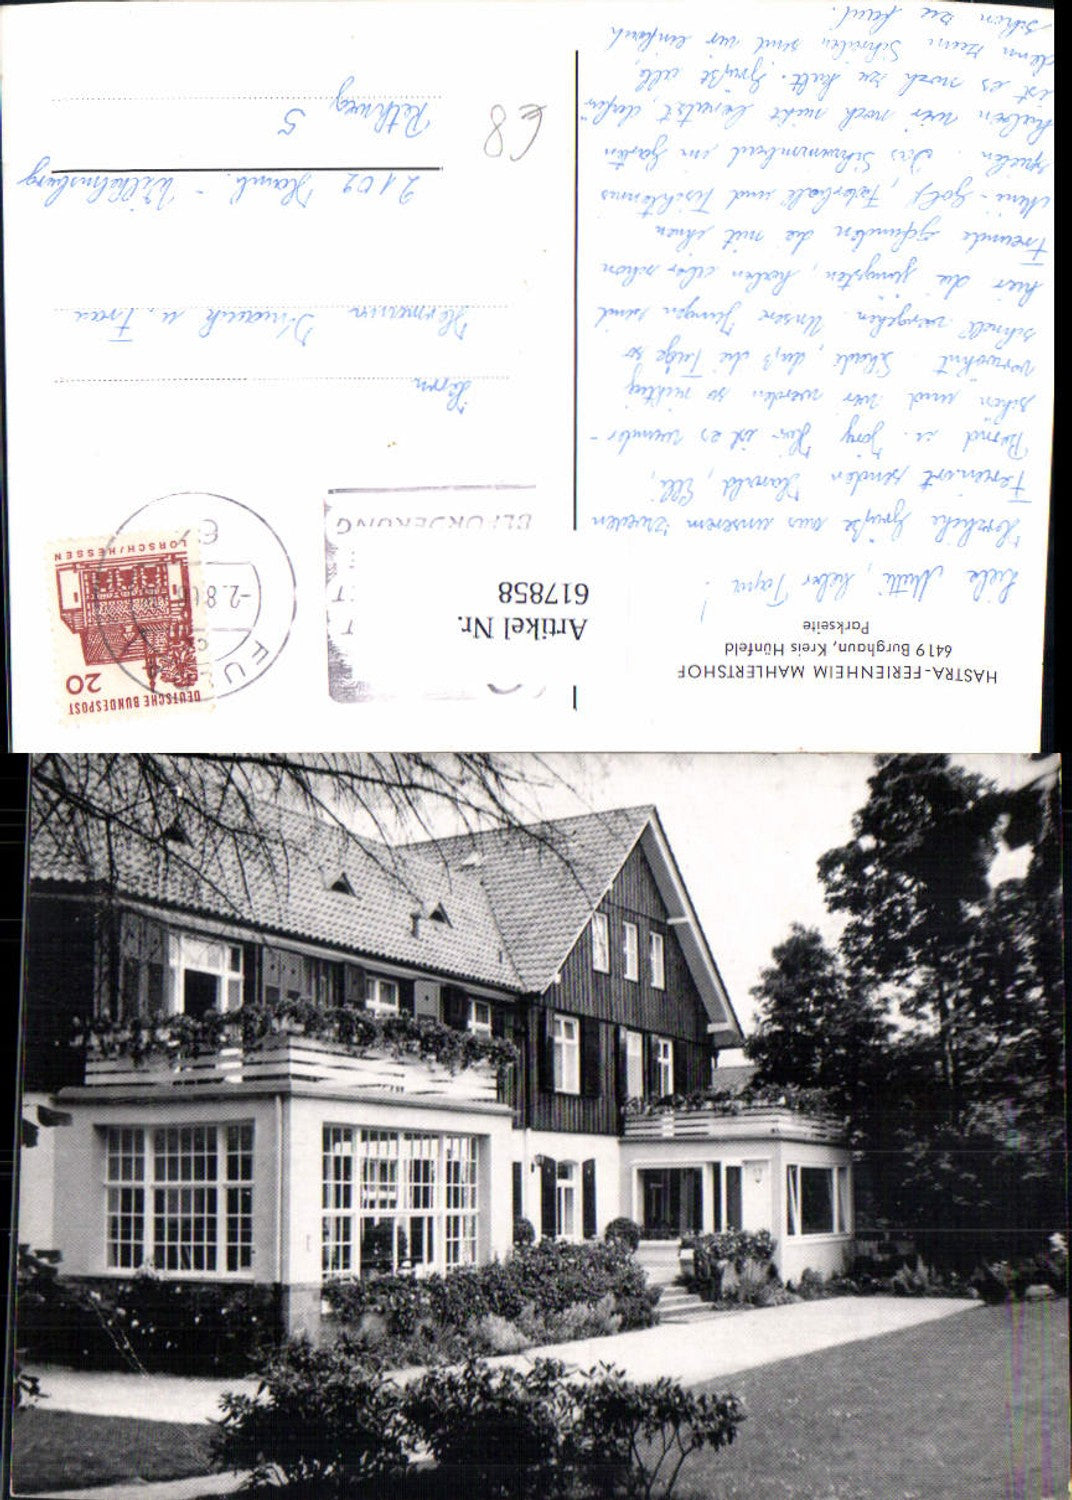 HASTRA-FERIENHEIM MAHLERTSHOF
6419 Burghaun, Kreis Hünfeld
Parkseite
Liebe Mutti, lieber Papa!
Herzliche Grüße aus unserem zweiten
Ferienort senden Harald, Elli,
Bernd u. Jörg. Hier ist es wunder-
schön und wir werden so richtig
verwöhnt. Schade, daß die Tage so
schnell vergehen. Unsere Jungen sind
hier die jüngsten, haben aber schon
Freunde gefunden die mit ihnen
Mini-Golf, Federball und Tischtennis
spielen. Das Schwimmbad im Garten
haben wir noch nicht benutzt, dafür
ist es noch zu kalt. Grüße alle,
denn zum Schreiben sind wir einfach
schon zu faul.
Artikel Nr.
617858
DEUTSCHE BUNDESPOST
20
LORSCH/HESSEN
FUL
-2.8.6
BEFÖRDERUNG
Herrn
Hermann u. Frau
2102 Hamb.-Wilhelmsburg
Rethweg 5
€8